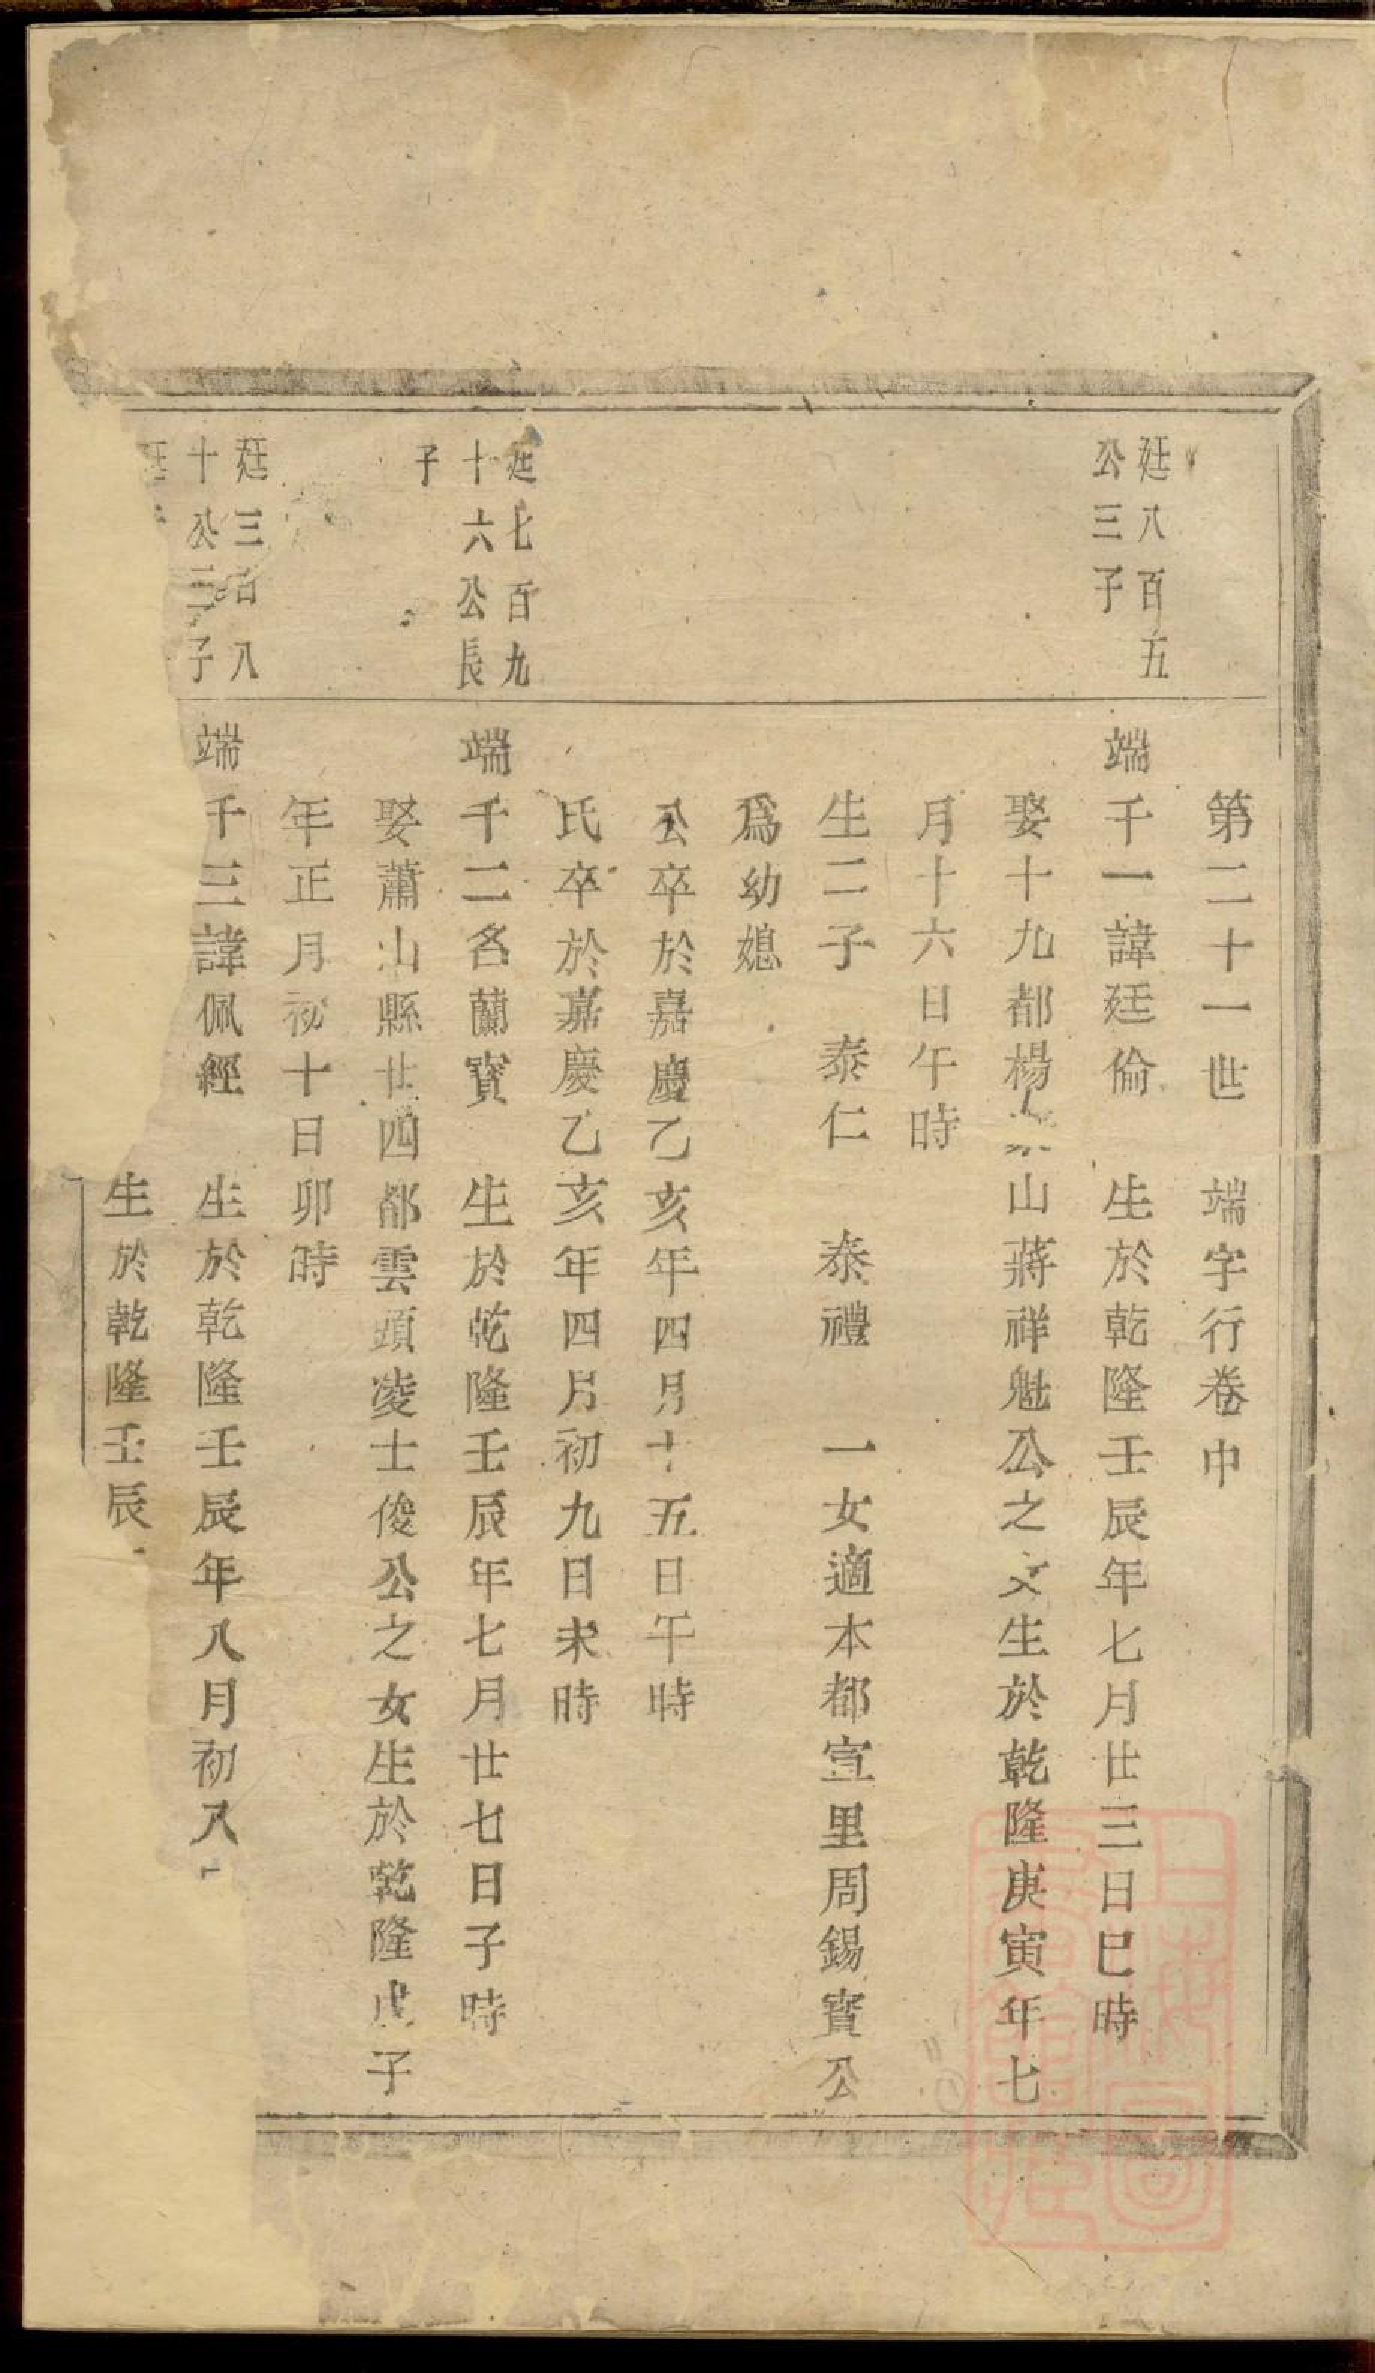 第二十一世 端字行卷中
廷八百五
公三子
端千一諱廷倫 生於乾隆壬辰年七月廿三日巳時
娶十九都楊 山蔣祥魁公之女生於乾隆庚寅年七
月十六日午時
生二子 泰仁 泰禮 一女適本都宣里周錫寶公
爲幼媳
公卒於嘉慶乙亥年四月十五日午時
氏卒於嘉慶乙亥年四月初九日未時
廷七百九
十六公長
子
端千二名蘭寳 生於乾隆壬辰年七月廿七日子時
娶蕭山縣廿四都雲頭凌士俊公之女生於乾隆戊子
年正月初十日卯時
廷三百八
十公三子
端千三諱佩經 生於乾隆壬辰年八月初八
廷
生於乾隆壬辰
上海圖書館藏